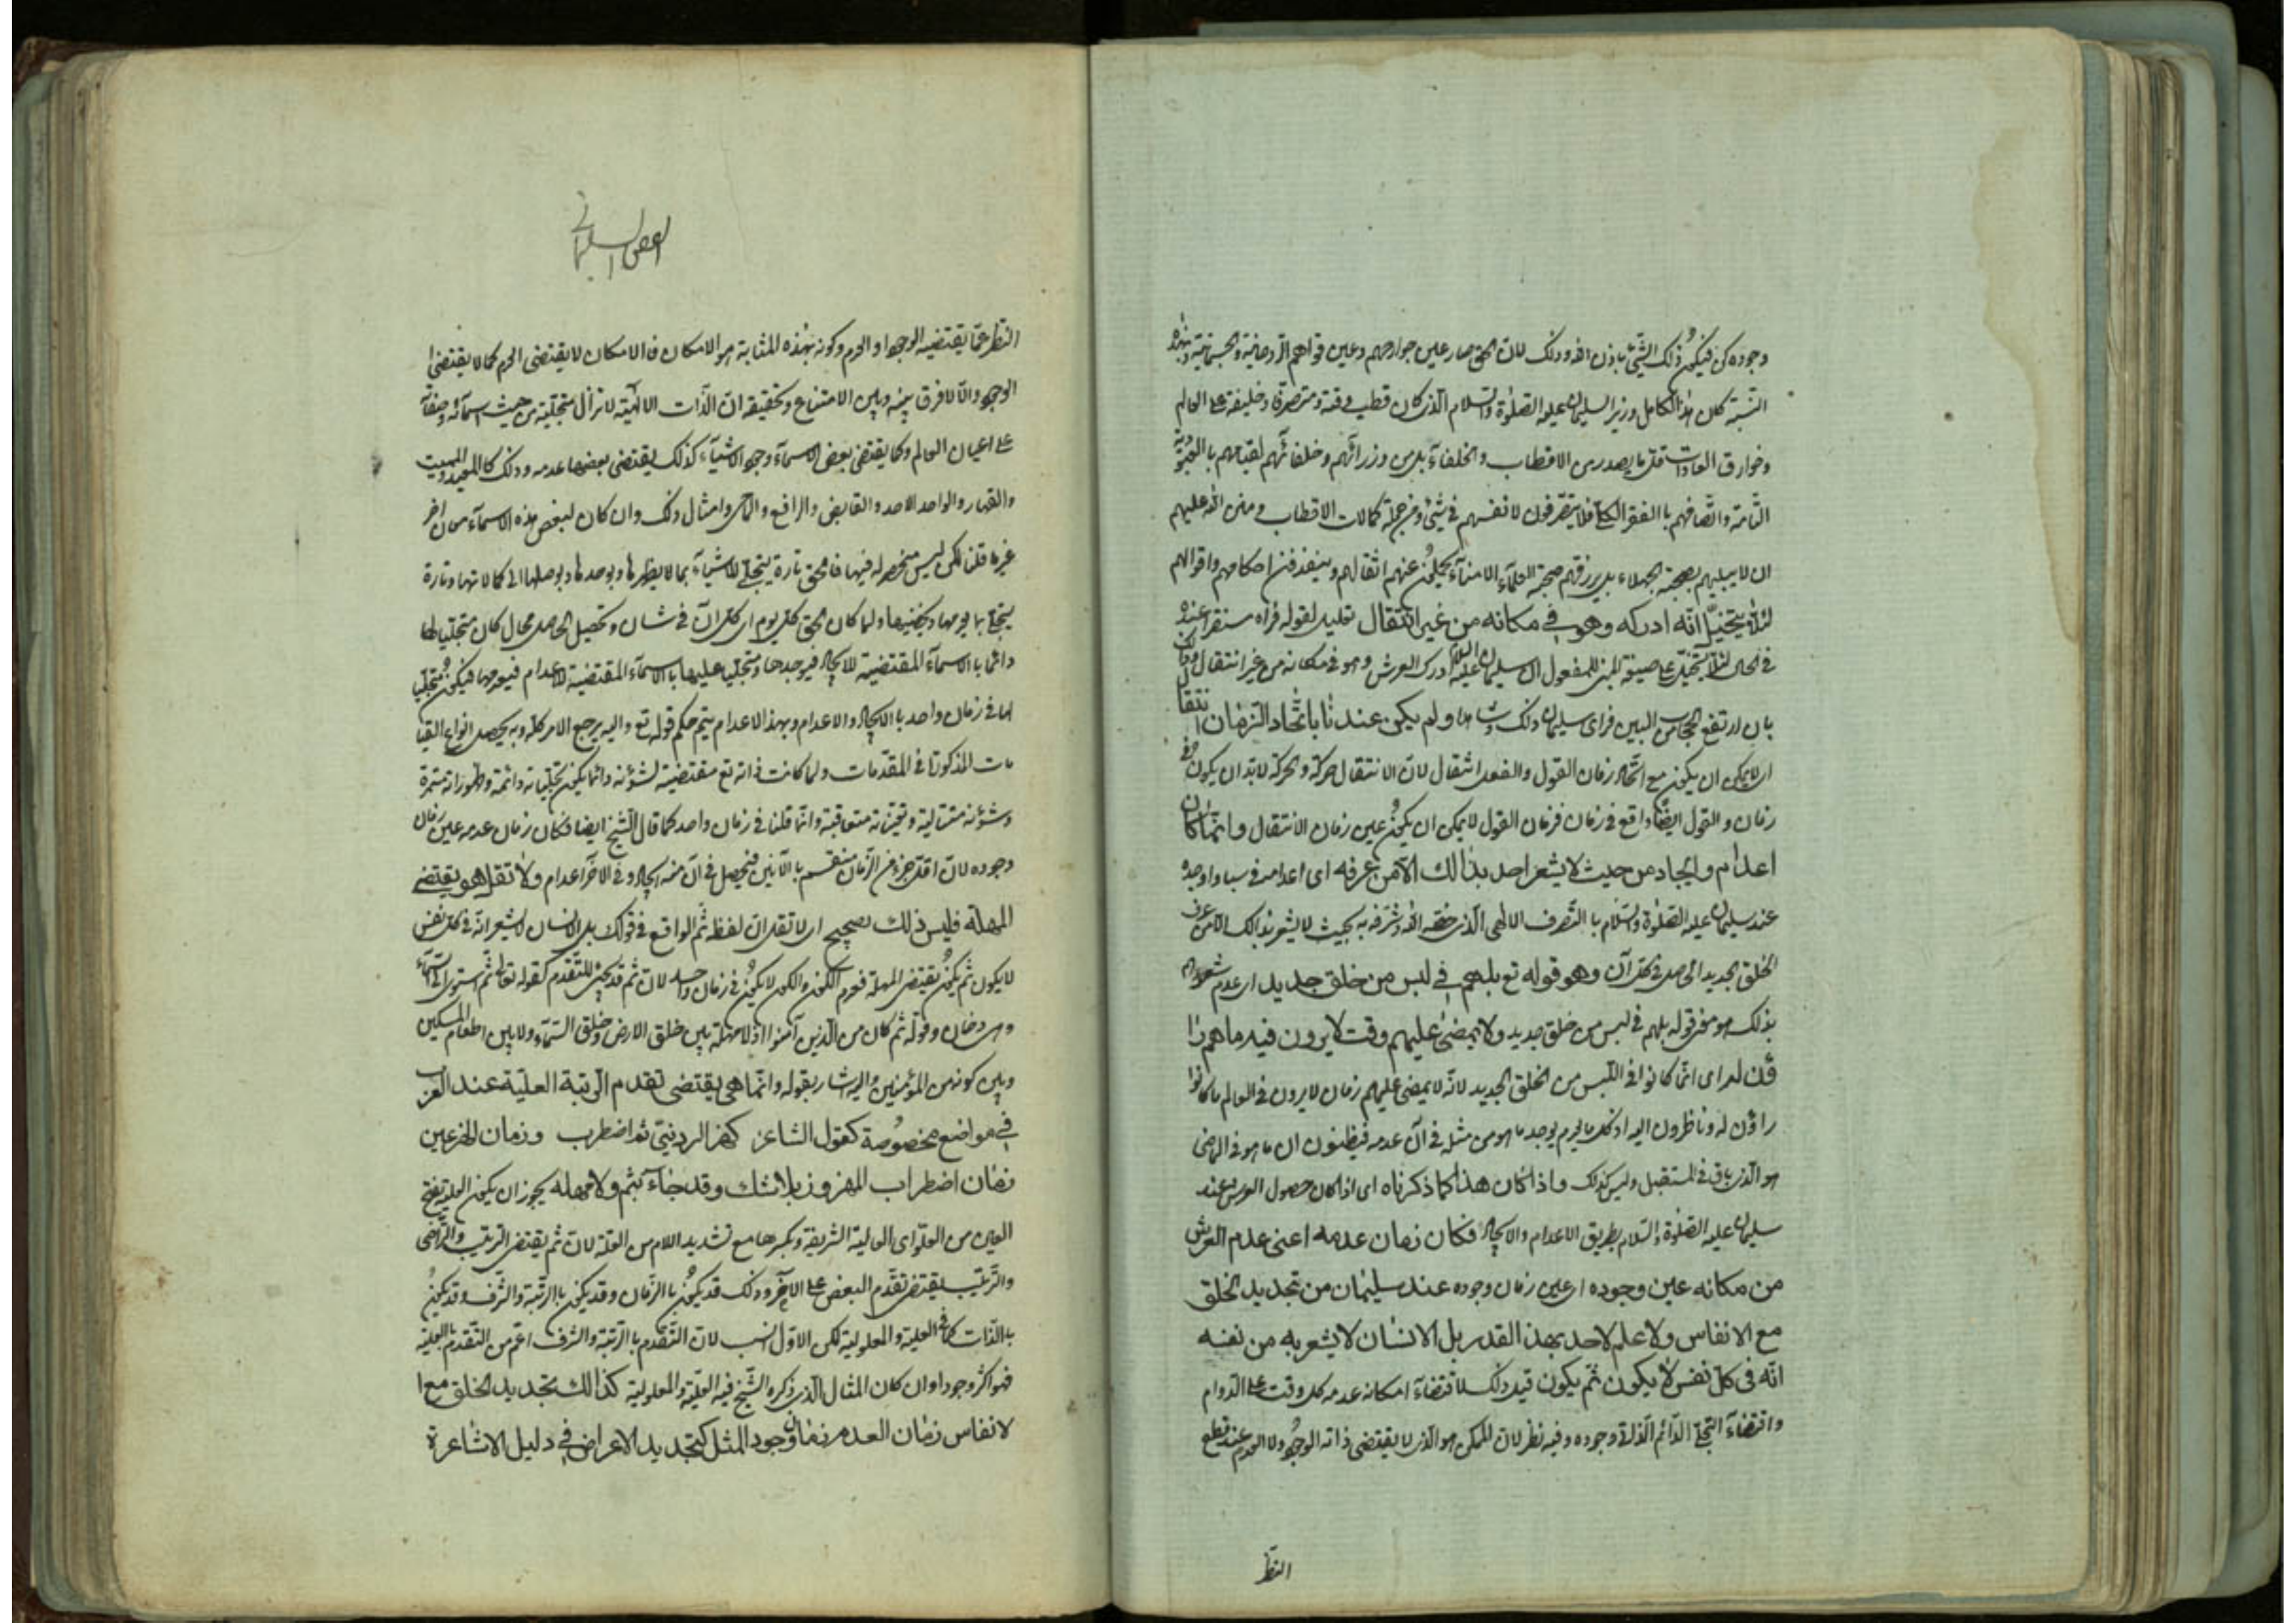 وجوده كن فيكون ذلك الشئ باذن الله وذلك لان الحق صار عين جوارحهم وعين قواهم الروحانية والجسمانية وبهذه
النسبة كان هذا الكامل وزير السليمان عليه الصلوة والسلام الذى كان قطب وقته ومتصرفا وخليفة على العالم
وخوارق العادات قلما يصدر من الاقطاب والخلفاء بل من وزرائهم وخلفائهم لقيامهم با العبودية
التامة واتصافهم با الفقر الكلى فلا يتصرفون لانفسهم فى شئ ومن جملة كمالات الاقطاب ومنن الله عليهم
ان لا يبليهم بصحبة الجهلاء بل يرزقهم صحبة العلماء الامناء يحملون عنهم اثقالهم وينفذون احكامهم واقوالهم
لئلا يتخيل انه ادركه وهو فى مكانه من غير انتقال تعليل لقوله فراه مستقرا عنده
فى الحال لئلا يتخيل على صيغة المبنى للمفعول ان سليمان عليه السلام ادرك العرش وهو فى مكانه من غير انتقال وذلك
بان ارتفع الحجاب من البين فراى سليمان ذلك وشاهد ولم يكن عندنا باتحاد الزمان انتقال
اى لا يمكن ان يكون مع اتحاد زمان القول والفعل انتقال لان الانتقال حركة والحركة لابد ان يكون فى
زمان والقول ايضا واقع فى زمان فزمان القول لا يمكن ان يكون عين زمان الانتقال وانما كان
اعدام وايجاد من حيث لا يشعر احد بذالك الا من عرفه اى اعدامه فى سبا واوجده
عند سليمان عليه الصلوة والسلام با التصرف الالهى الذى خصه الله وشرفه به بحيث لا يشعر بذالك الا من عرف
الخلق الجديد الحاصل فى كل آن وهو قوله تع بل هم فى لبس من خلق جديد اى عدم شعورهم
بذلك هو معنى قوله بل هم فى لبس من خلق جديد ولا يمضى عليهم وقت لا يرون فيه ما هم را
ؤن له اى انما كانوا فى اللبس من الخلق الجديد لانه لا يمضى عليهم زمان لا يرون فى العالم ما كانوا
راؤن له وناظرون اليه اذ كل ما يعدم يوجد ما هو من مثله فى آن عدمه فيظنون ان ما هو فى الماضى
هو الذى باق فى المستقبل وليس كذلك واذا كان هذا كما ذكرناه اى اذا كان حصول العرش عند
سليمان عليه الصلوة والسلام بطريق الاعدام والايجاد فكان زمان عدمه اعنى عدم العرش
من مكانه عين وجوده اى عين زمان وجوده عند سليمان من تجديد الخلق
مع الانفاس ولا علم لاحد بهذا القدر بل الانسان لا يشعر به من نفسه
انه فى كل نفس لا يكون ثم يكون قيل ذلك لاقتضاء امكانه عدمه كل وقت على الدوام
واقتضاء التجلى الدائم الذاتى وجوده وفيه نظر لان الممكن هو الذى لا يقتضى ذاته الوجود ولا العدم عند قطع
النظر
الفص السليمانى
النظر عما يقتضيه الوجود او العدم وكونه بهذه المثابة هو الامكان فالامكان لا يقتضى العدم كما لا يقتضى
الوجود والا لا فرق بينه وبين الامتناع وتحقيقه ان الذات الالهية لا تزال متجلية من حيث اسمائه وصفاته
على اعيان العالم وكما يقتضى بعض الاسماء وجود الاشياء كذلك يقتضى بعضها عدمه وذلك كالمعيد والمميت
والقهار والواحد الاحد والقابض والرافع والماحى وامثال ذلك وان كان لبعض هذه الاسماء معان اخر
غيرها قلنا لكن ليس منحصرا فيها فالحق تارة يتجلى للاشياء بما يظهرها ويوجدها ويوصلها الى كمالاتها وتارة
يتجلى بما يعدمها ويخفيها ولما كان الحق كل يوم اى كل آن فى شان وتحصيل الحاصل محال كان متجليا لها
دائما با الاسماء المقتضية للايجاد فيوجدها ومتجليا عليها با الاسماء المقتضية للاعدام فيعدمها فيكون متجليا
لها فى زمان واحد با الايجاد والاعدام وبهذا الاعدام يتم حكم قوله تع واليه يرجع الامر كله وبه يحصل انواع القيا
مات المذكورة فى المقدمات ولما كانت ذاته تع مقتضية لشؤنه دائما يكون تجلياته دائمة وظهوراته مستمرة
وشؤنه متتالية وتعيناته متعاقبة وانما قلنا فى زمان واحد كما قال الشيخ ايضا فكان زمان عدمه عين زمان
وجوده لان اقل جزء من الزمان منقسم با الآنين فيحصل فى آن منه ايجاد وفى الآخر اعدام ولا تقل هو يقتضى
المهلة فليس ذلك بصحيح اى لا تقل ان لفظ ثم الواقع فى قولك بل الانسان لا يشعر انه فى كل نفس
لا يكون ثم يكون يقتضى المهلة فعدم الكون والكون لا يكون فى زمان واحد لان ثم قد يجئ للتقدم كقوله تعالى ثم استوى الى السماء
وهى دخان وقوله ثم كان من الذين آمنوا اذ لا مهلة بين خلق الارض وخلق السماء ولا بين اطعام المسكين
وبين كونه من المؤمنين واليه اشار بقوله وانما هى يقتضى تقدم الرتبة العلية عند العرب
فى مواضع مخصوصة كقول الشاعر كهز الردينى ثم اضطرب وزمان الهز عين
زمان اضطراب المهزوز بلا شك وقد جاء بثم ولا مهلة يجوز ان يكون العلية بفتح
العين من العلو اى العالية الشريفة وبكسرها مع تشديد اللام من العلة لان ثم يقتضى الترتيب والتراخى
والترتيب يقتضى تقدم البعض على الآخر وذلك قد يكون با الزمان وقد يكون با الرتبة والشرف وقد يكون
با الذات كما فى العلية والمعلولية لكن الاول انسب لان التقدم با الرتبة والشرف اعم من التقدم بالعلية
فهو اكثر وجودا وان كان المثال الذى ذكره الشيخ فيه العلية والمعلولية كذالك تجديد الخلق مع ا
لانفاس زمان العدم زمان وجود المثل كتجديد الاعراض فى دليل الاشاعرة